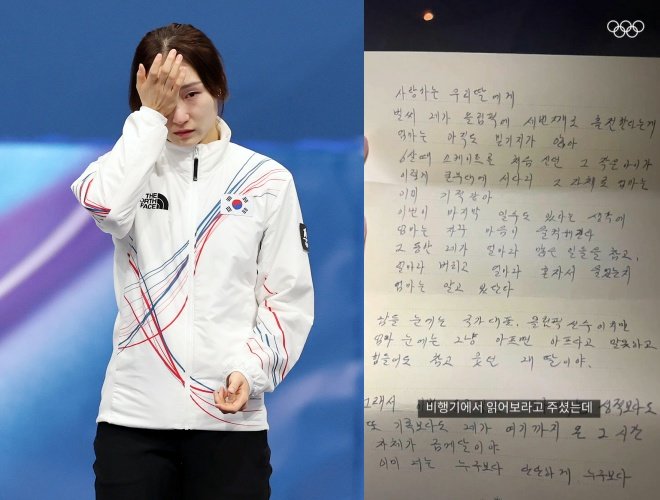 THE
NORTH
FACE
사랑하는 우리딸에게
벌써 네가 올림픽에 세번째로 출전한다는게
엄마는 아직도 믿기지가 않아
6살때 스케이트를 처음 신던 그 작은아이가
이렇게 큰무대에 서다니 그 자체로 엄마는
이미 기적같아
이번이 마지막 일수도 있다는 생각에
엄마는 자꾸 마음이
그동안 네가 얼마나 많은 일들을 참고,
얼마나 버티고 얼마나 혼자서 울었는지
엄마는 알고 있단다
남들 눈에는 국가대표, 올림픽 선수이지만
엄마 눈에는 그냥 아프면 아프다고 말못하고
힘들어도 참고 웃던 내 딸이야.
그래서 성적보다도
비행기에서 읽어보라고 주셨는데
또 기록보다도 네가 여기까지 온 그 시간
자체가 금메달이야
이미 너는 누구보다 단단하게 누구보다